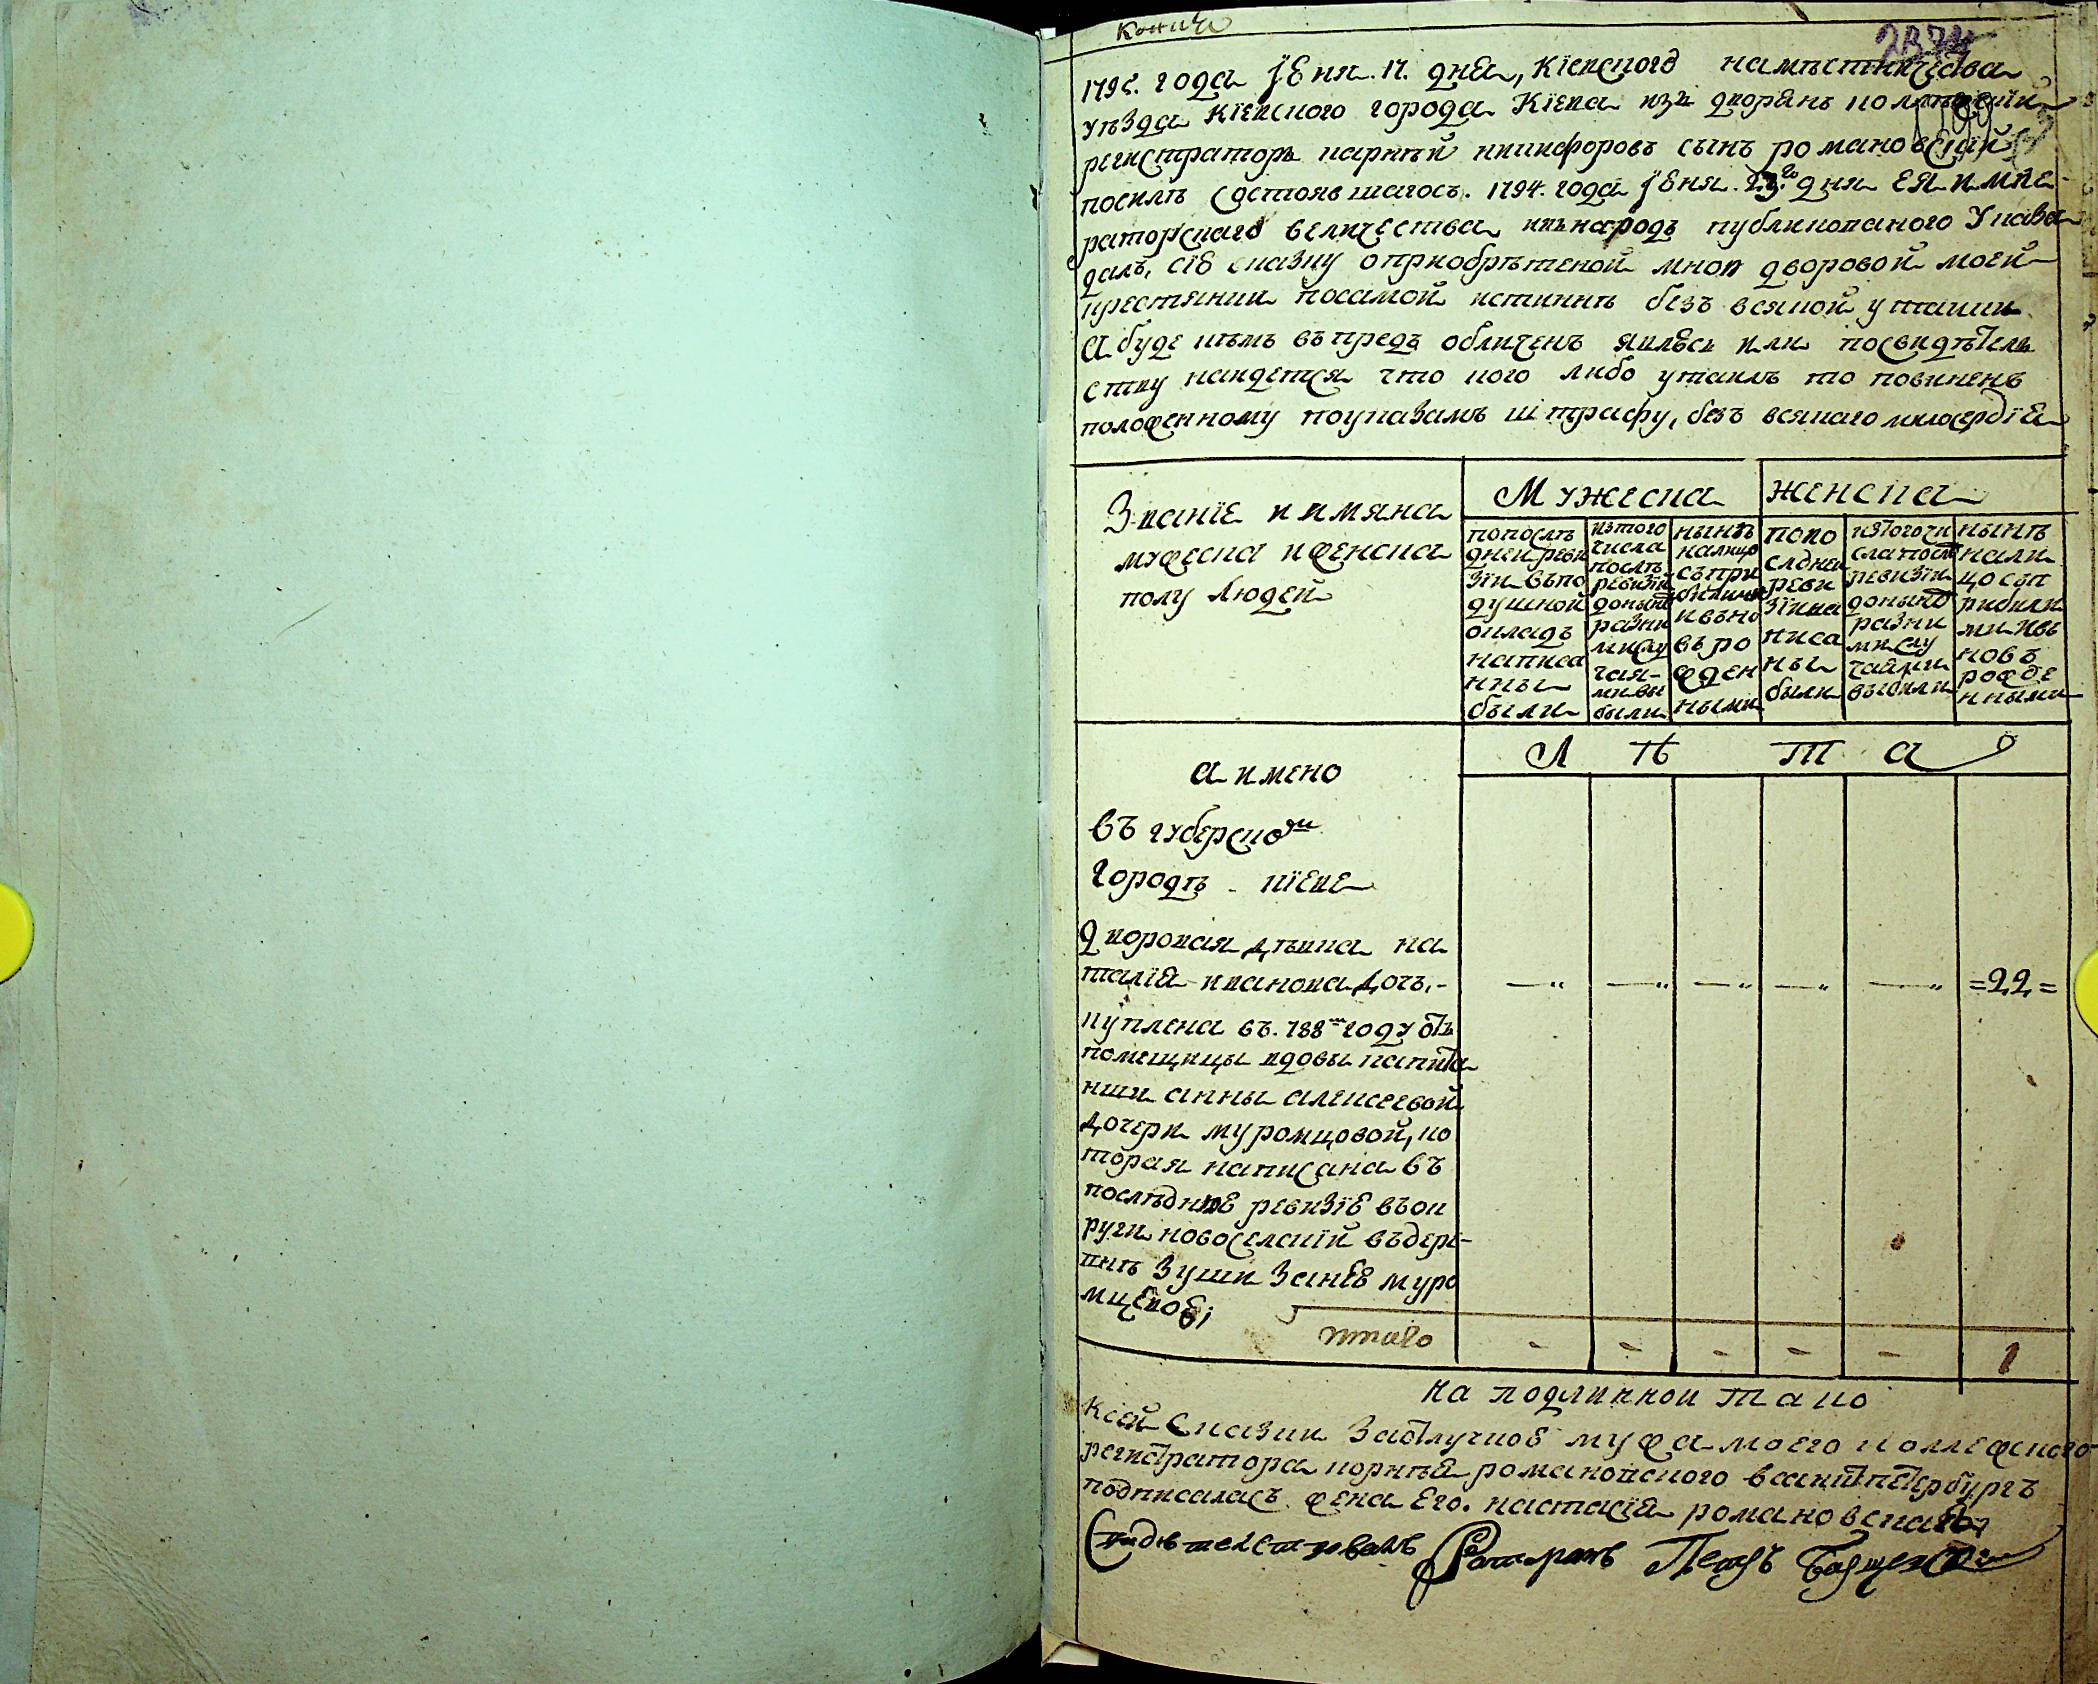 Копия
1795. года Іюня. 17. дня, Кіевского намѣстничества
уѣзда кіевского города Кіева изъ дворянъ коллежскій
регистраторъ карнѣй никифоровъ сынъ романовскій
посилѣ состоявшагось. 1794. года Іюня. 23.го дня ея импе-
раторскаго величества внародъ публикованого Указа
далъ, сію сказку оприобрѣтеной мною дворовой моей
крестянки посамой истиннѣ безъ всякой утайки
А буде кѣмъ въпредь обличенъ явлюсь или посвидѣтель
ству найдется что кого либо утаилъ то повиненъ
положенному поуказамъ штрафу, безъ всякаго милосердія
Званіе и имяна
мужеска иженска
полу людей
Мужеска женска
попослѣ
дней реви
зіи въпо
душной
окладъ
написа
нны
были
изтого
числа
послѣ
ревизіи
донынѣ
разни
мислу
чая-
ми вы
были
нынѣ
налицо
съпри
былими
ивъно
въро
жден
ными
попо
слдней
реви
зіина
писа
ны
были
изтогочи
слапослѣ
ревизіи
донынѣ
разни
мислу
чайми
выбыли
нынѣ
нали
цосъп
рибыли
ми ивъ
новъ
рожде
нными
Л ѣ т а
а имено
въ губерской
городѣ кіеве
дворовая дѣвка на
талія иванова дочь.- =22=
куплена въ. 788м году отъ
помещицы вдовы капита
нши анны алексеевой
дочери муромцовой, ко
торая написана въ
последнюю ревизію въок
руги новоселскій въдере-
внѣ Зуши Занею муро
мцевою;
итого - - - - - 1
На подлинной тако
Ксей сказки заотлучкою мужа моего коллежского
регистратора корнѣя романовского всанктпетербургъ
подписалась жена его. настасія романовская
Свидѣтелствовалъ Ротмистръ Петръ